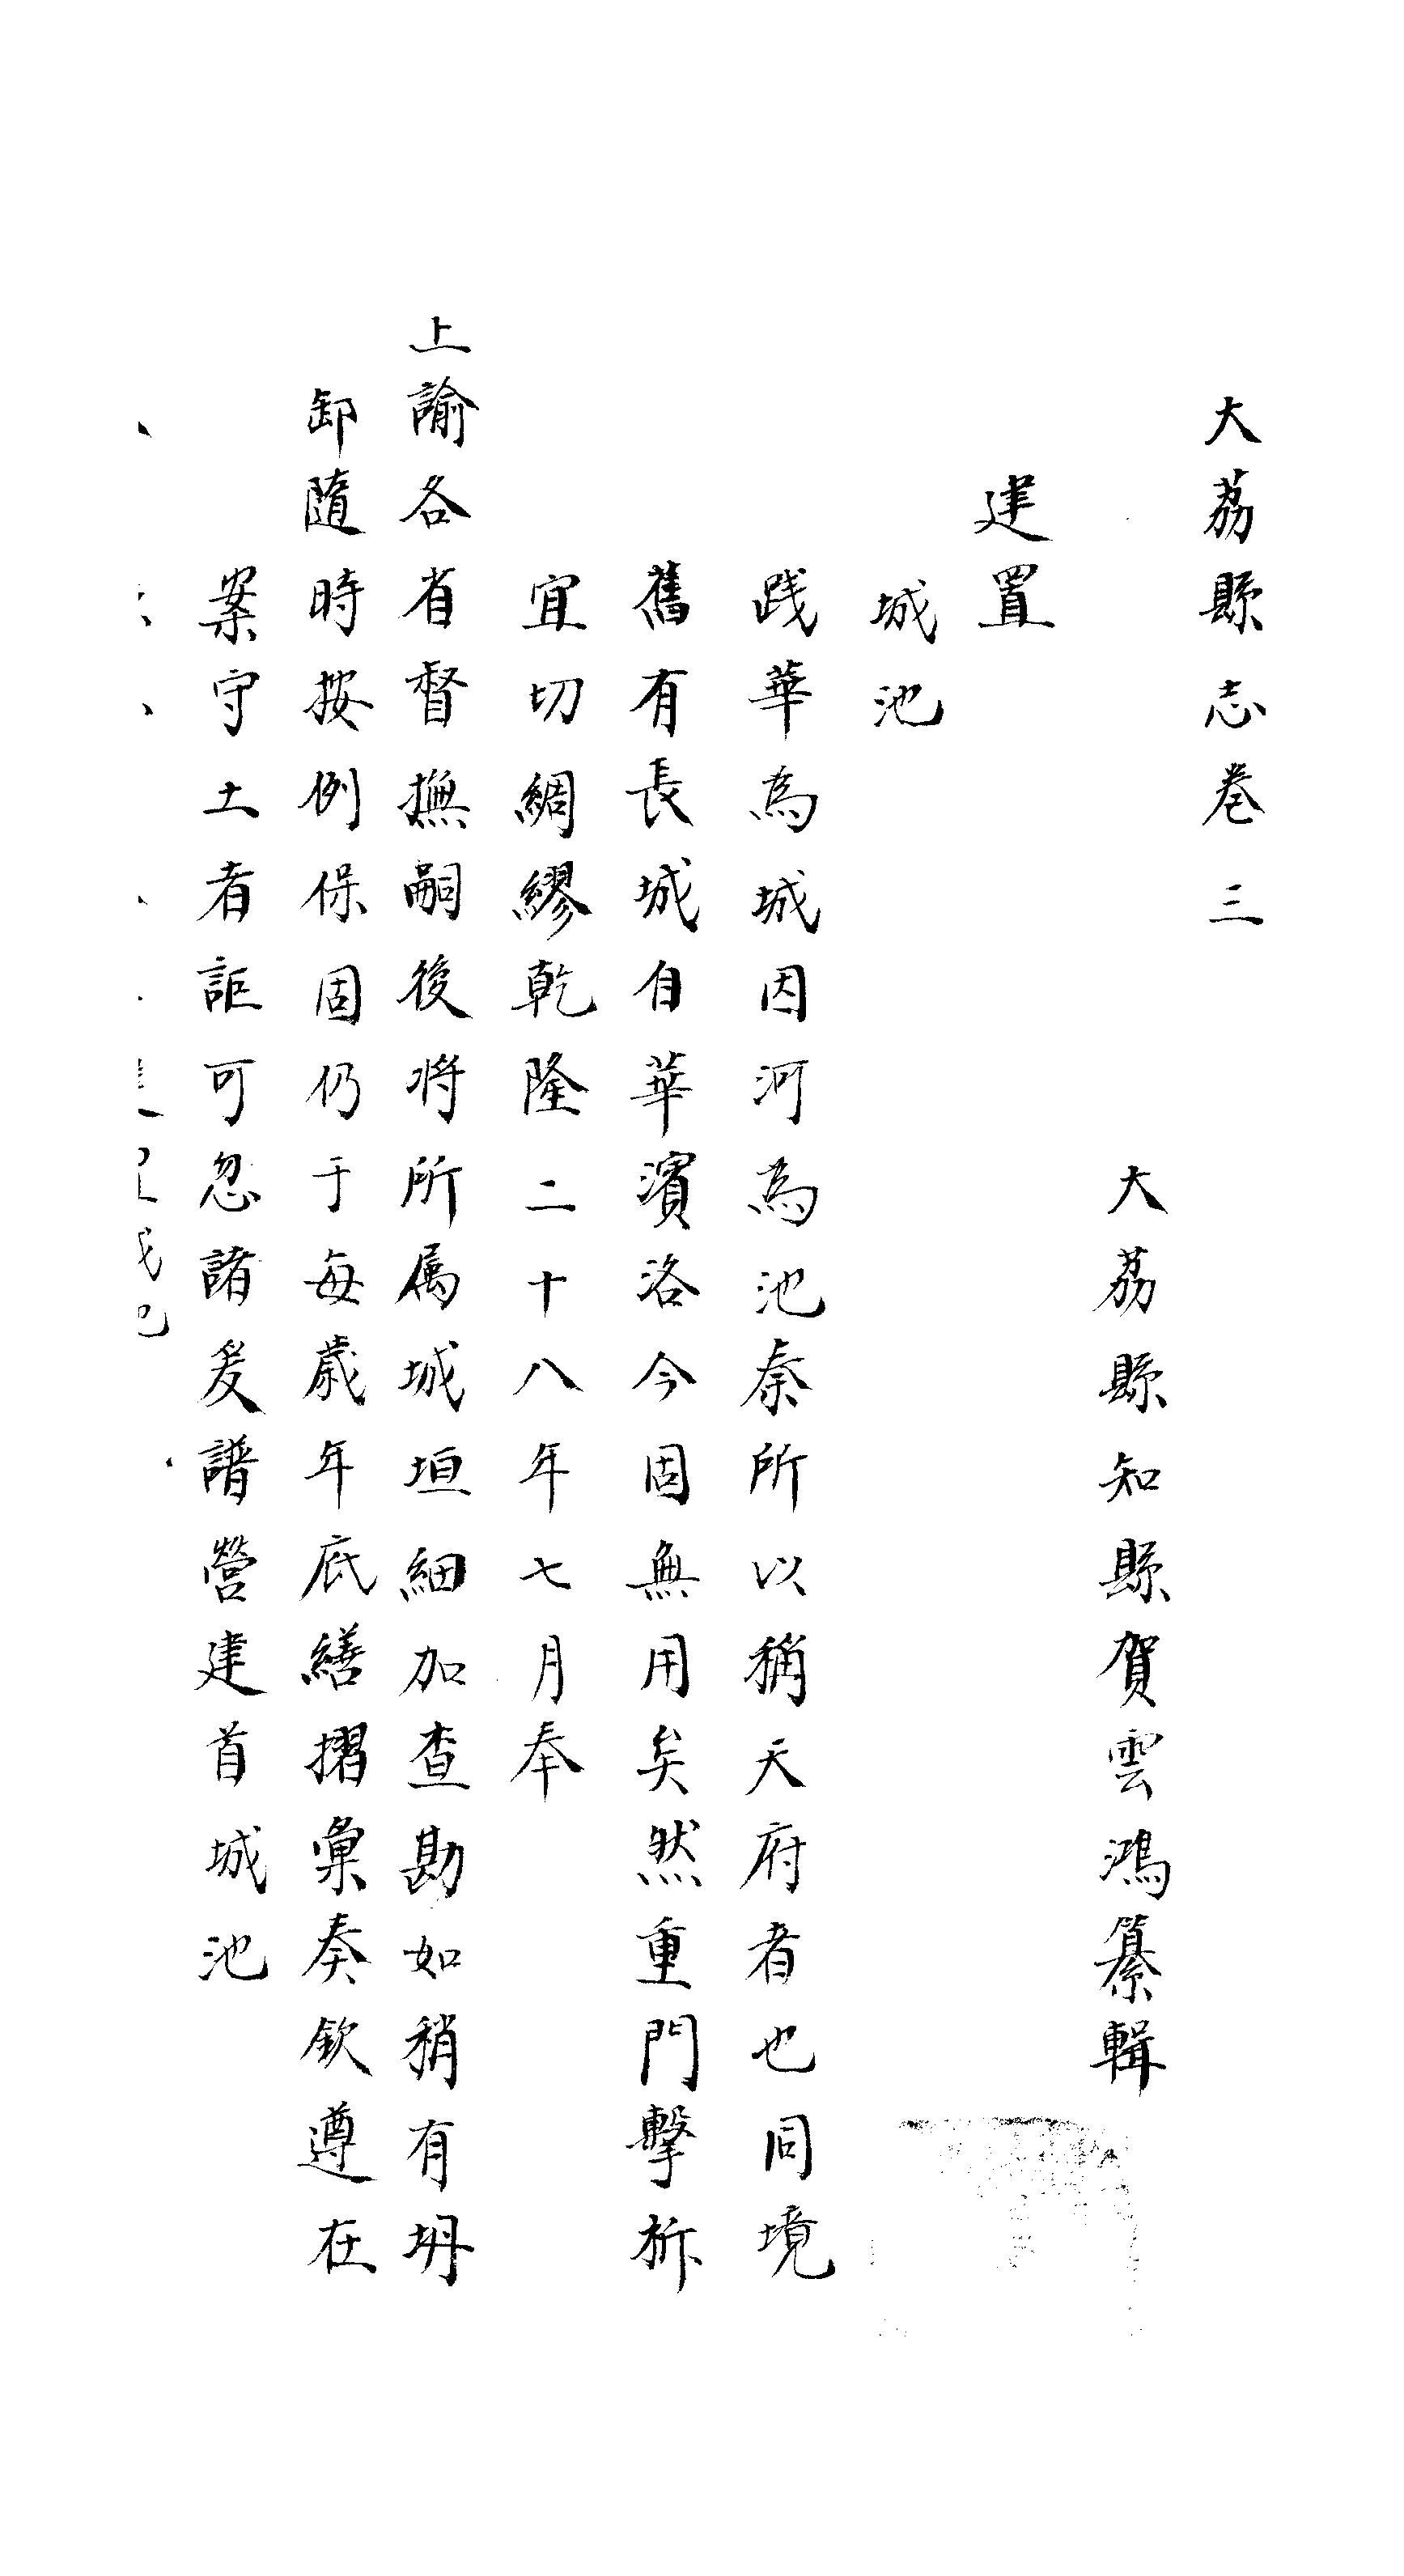 大荔縣志卷三
大荔縣知縣賀雲鴻纂輯
建置
城池
践華為城因河為池秦所以稱天府者也同境
舊有長城自華濱洛今固無用矣然重門擊柝
宜切綢繆乾隆二十八年七月奉
上諭各省督撫嗣後將所屬城垣細加查勘如稍有坍
卸隨時按例保固仍于每歲年底繕摺彙奏欽遵在
案守土者詎可忽諸爰譜營建首城池